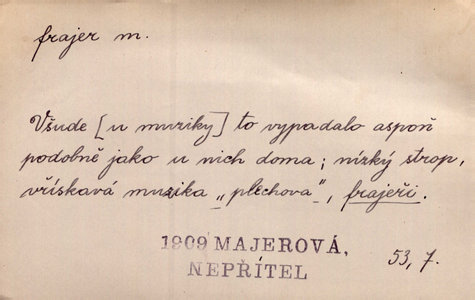 frajer m.
Všude [u muziky] to vypadalo aspoň
podobně jako u nich doma; nízký strop,
vřískavá muzika „plechova“, frajeři.
1909 MAJEROVÁ,
NEPŘÍTEL
53, 7.